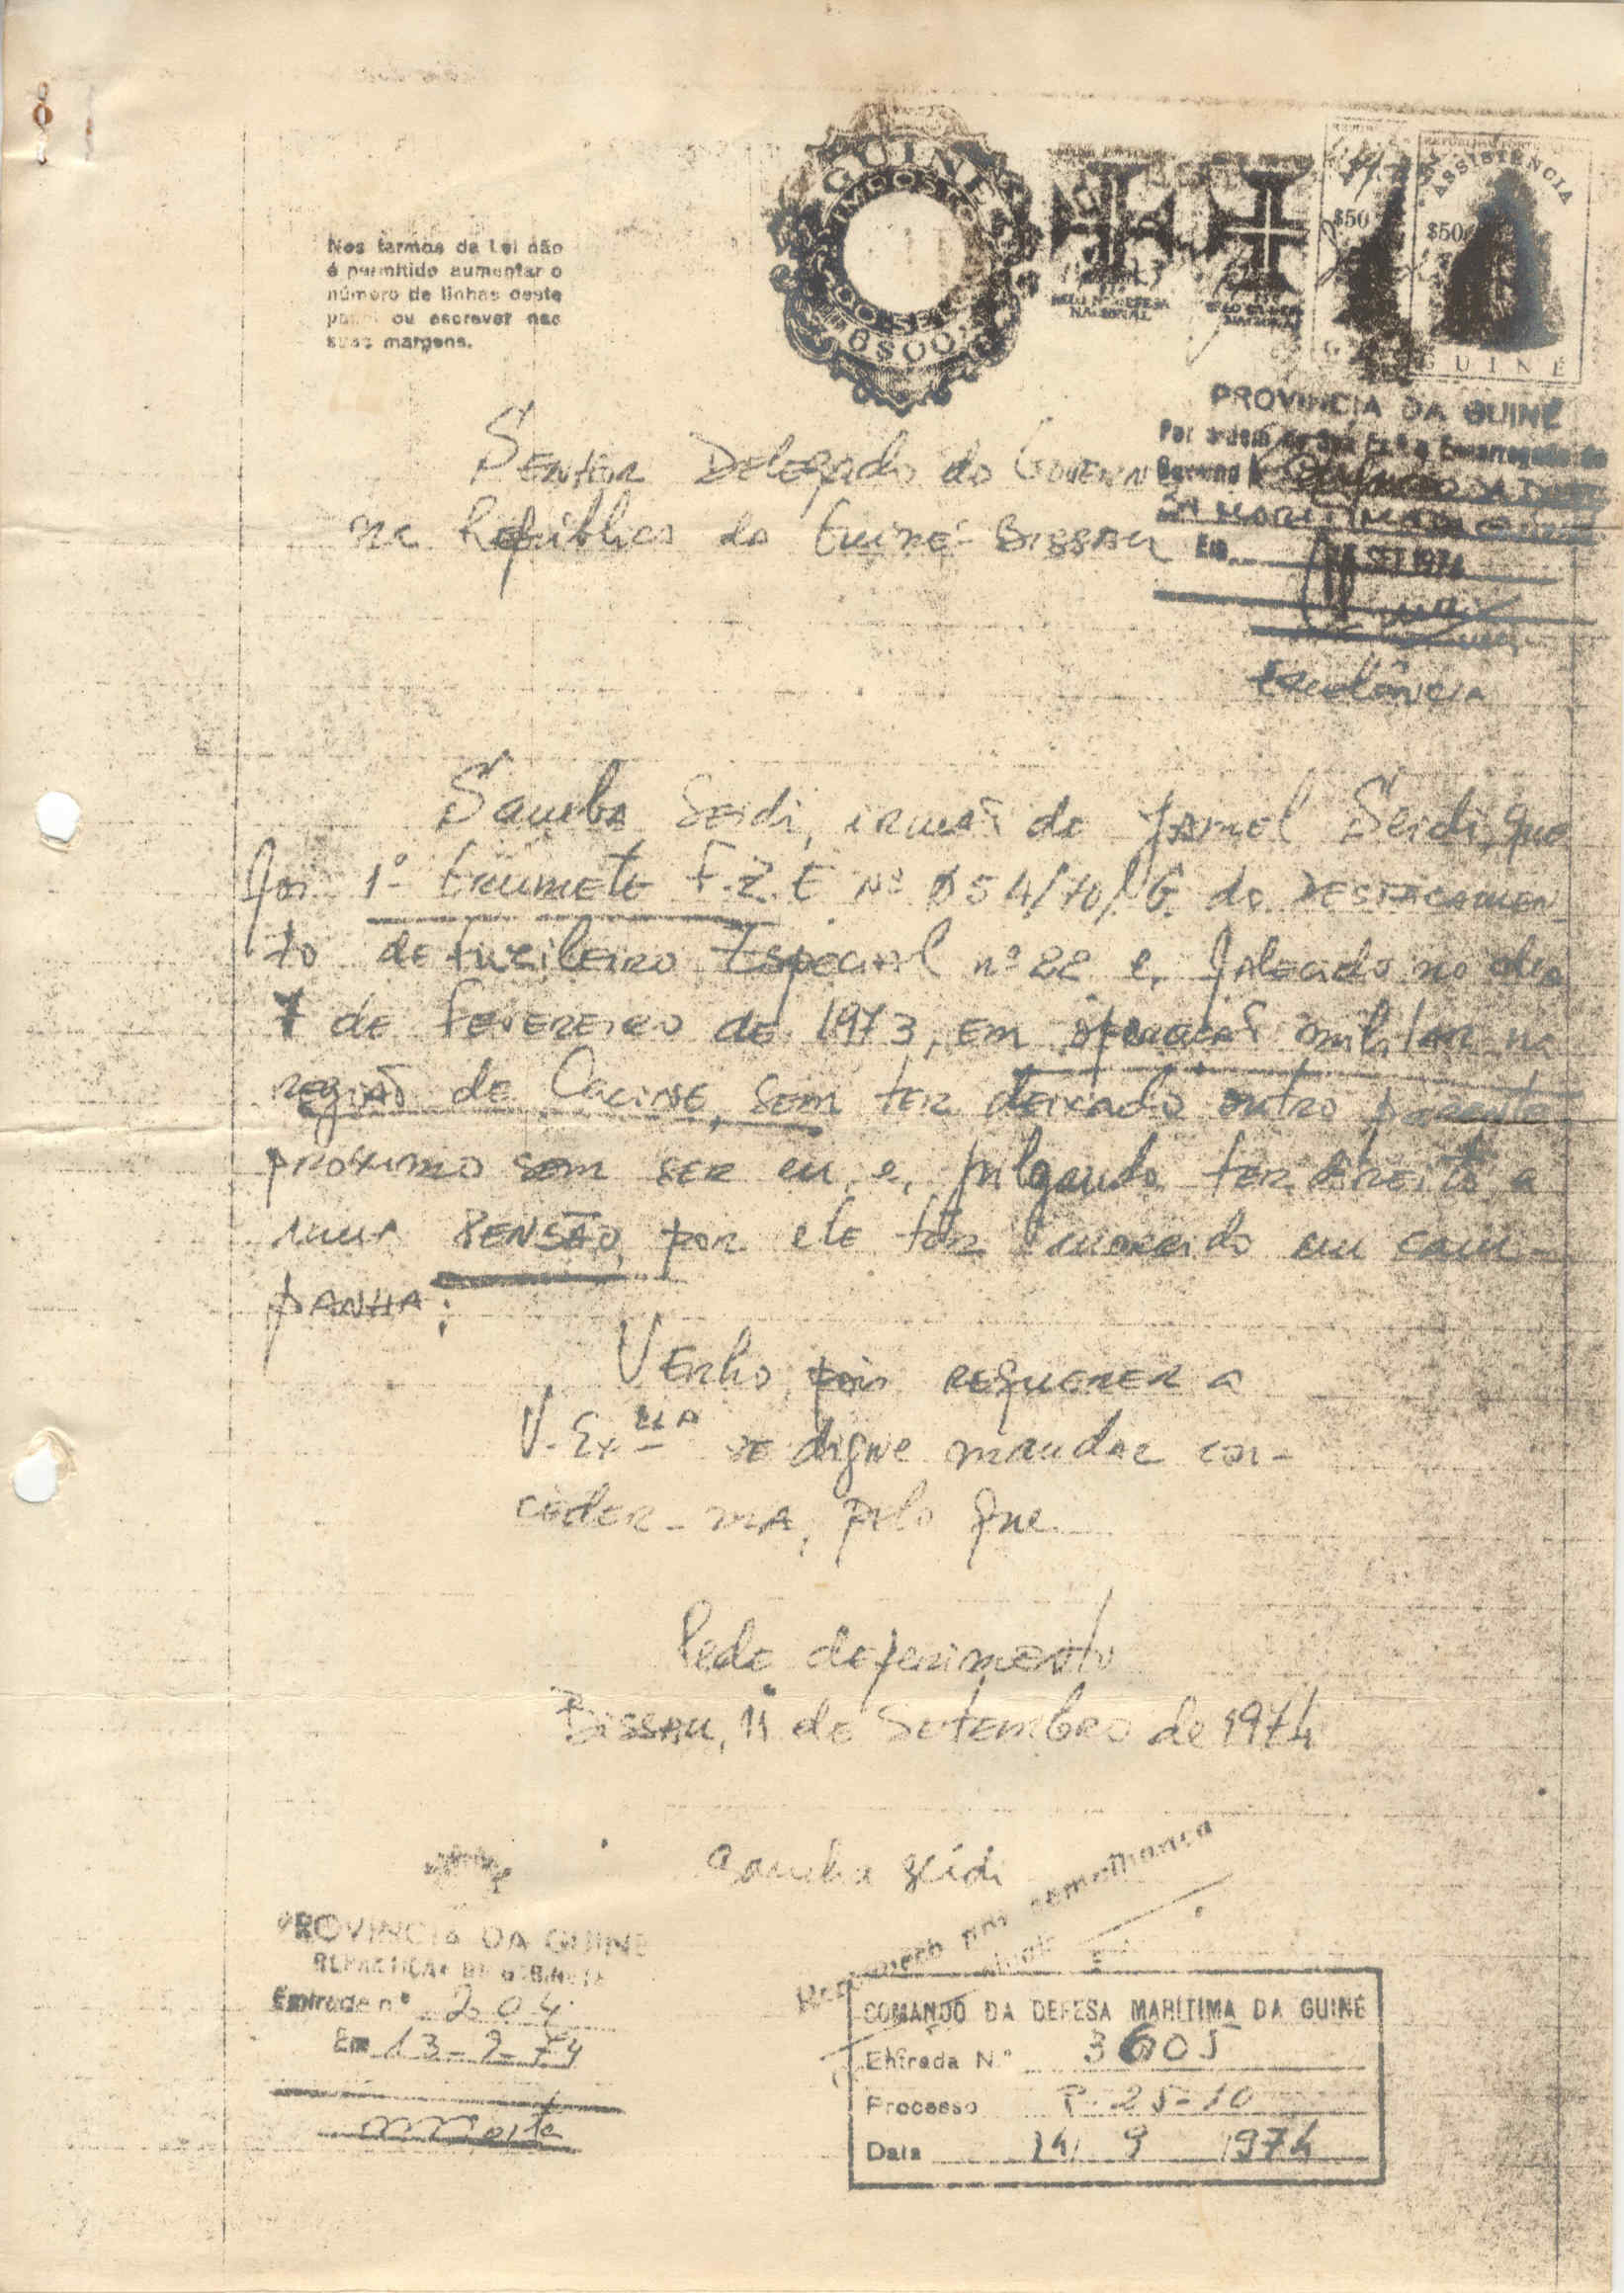 Nos termos da Lei não
é permitido aumentar o
número de linhas deste
papel ou escrever nas
suas margens.
GUINÉ
IMPOSTO
DO SELO
8$00
DEFESA
NACIONAL
NACIONAL
$50
ASSISTÊNCIA
$50
GUINÉ
PROVINCIA DA GUINÉ
Por ordem de Sua Exª o Encarregado do
Governo
Em SET 1974
Senhor Delegado do Governo
na República da Guiné-Bissau
Excelência
Samba Seidi, irmão de Jamel Seidi, que
foi 1º Grumete F.Z.E nº 854/70/G. do Destacamen-
to de Fuzileiro Especial nº 22 e, falecido no dia
7 de Fevereiro de 1973, em operação militar na
região de Cacine, sem ter deixado outro parente
próximo sem ser eu, e, julgando ter direito a
uma PENSÃO, por ele ter morrido em cam-
panha;
Venho, pois requerer a
V. Exª se digne mandar con-
ceder-ma, pelo que
Pede deferimento
Bissau, 11 de Setembro de 1974
Samba Seidi
semelhança
PROVINCIA DA GUINÉ
REPARTIÇÃO DE GABINETE
Entrada nº 204
Em 13-9-74
COMANDO DA DEFESA MARÍTIMA DA GUINÉ
Entrada N.º 3605
Processo P-25-10
Data 14/ 9 /1974